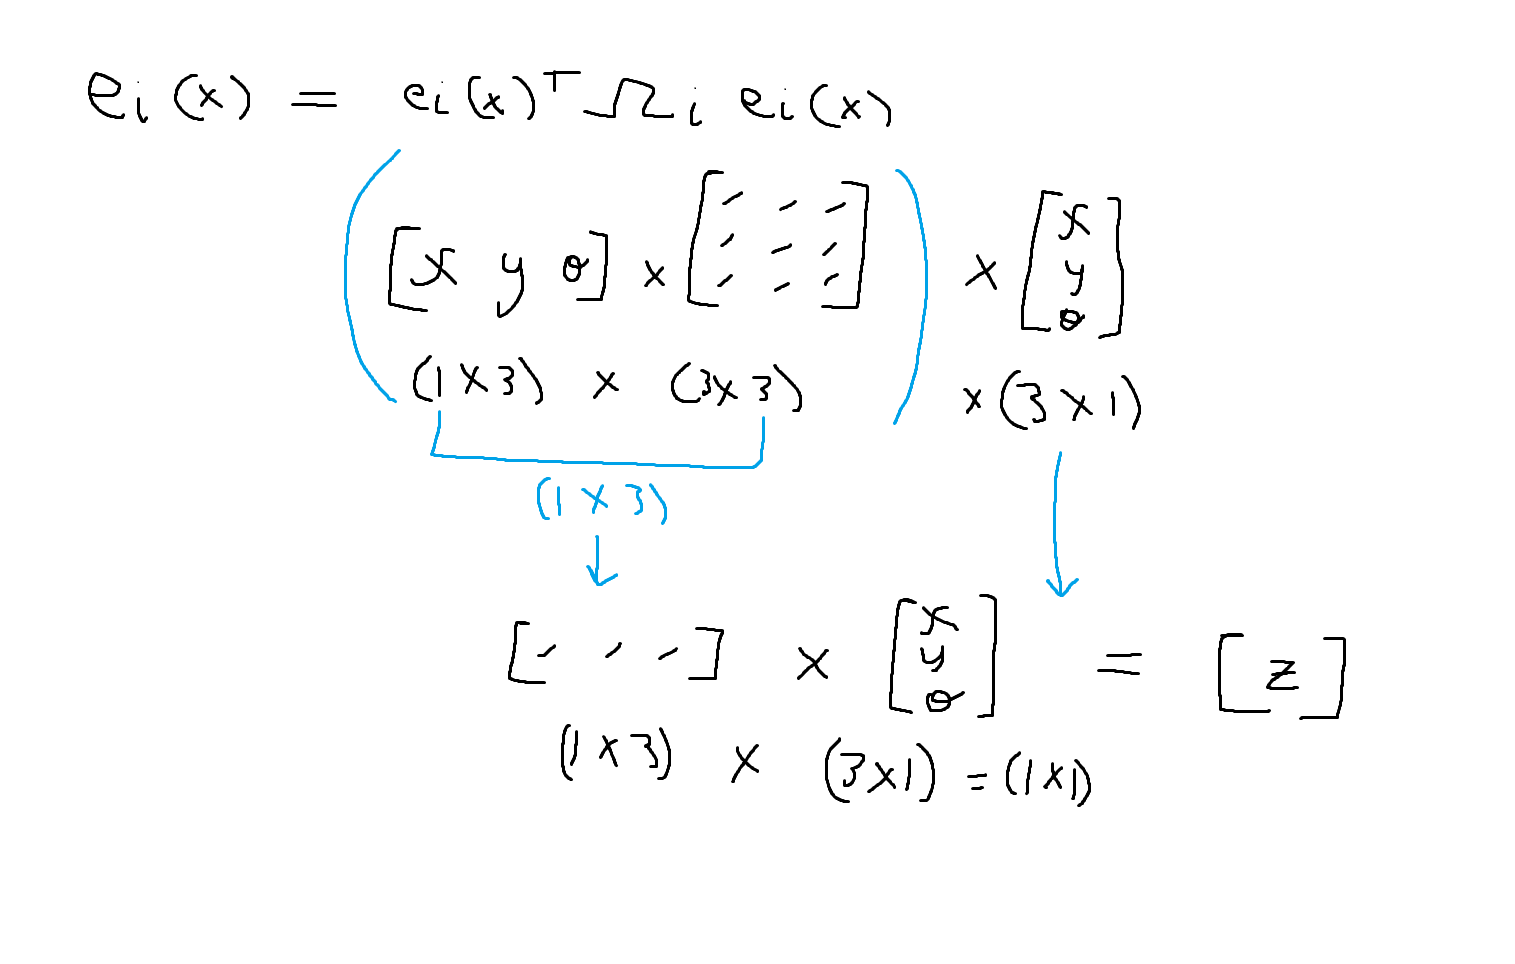 ei(x) = ei(x)ᵀ Ωi ei(x)
[x y θ] × [- - - - - - - - -] × [x y θ]
(1×3) × (3×3) × (3×1)
(1×3)
[- - -] × [x y θ] = [z]
(1×3) × (3×1) = (1×1)